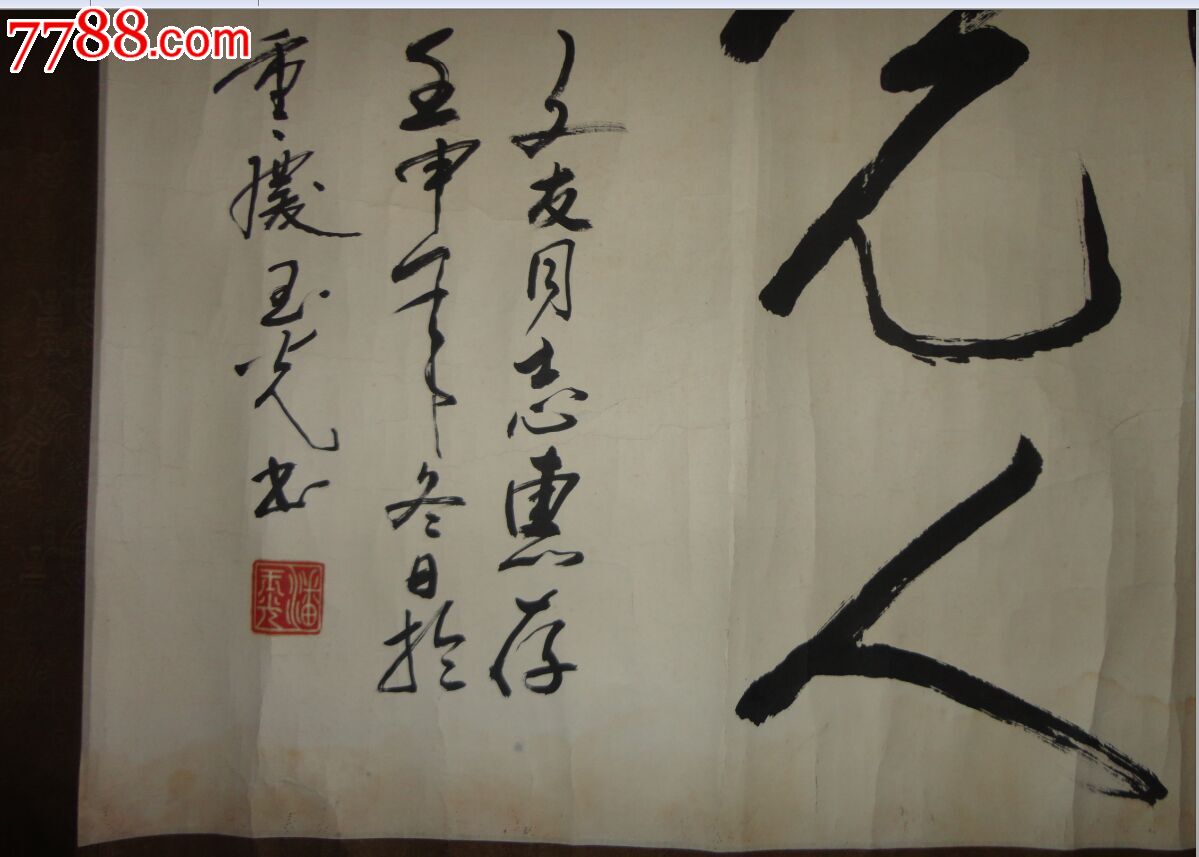 7788.com
人
文友同志惠存
壬申年冬日於
重慶玉光书
潘玉光